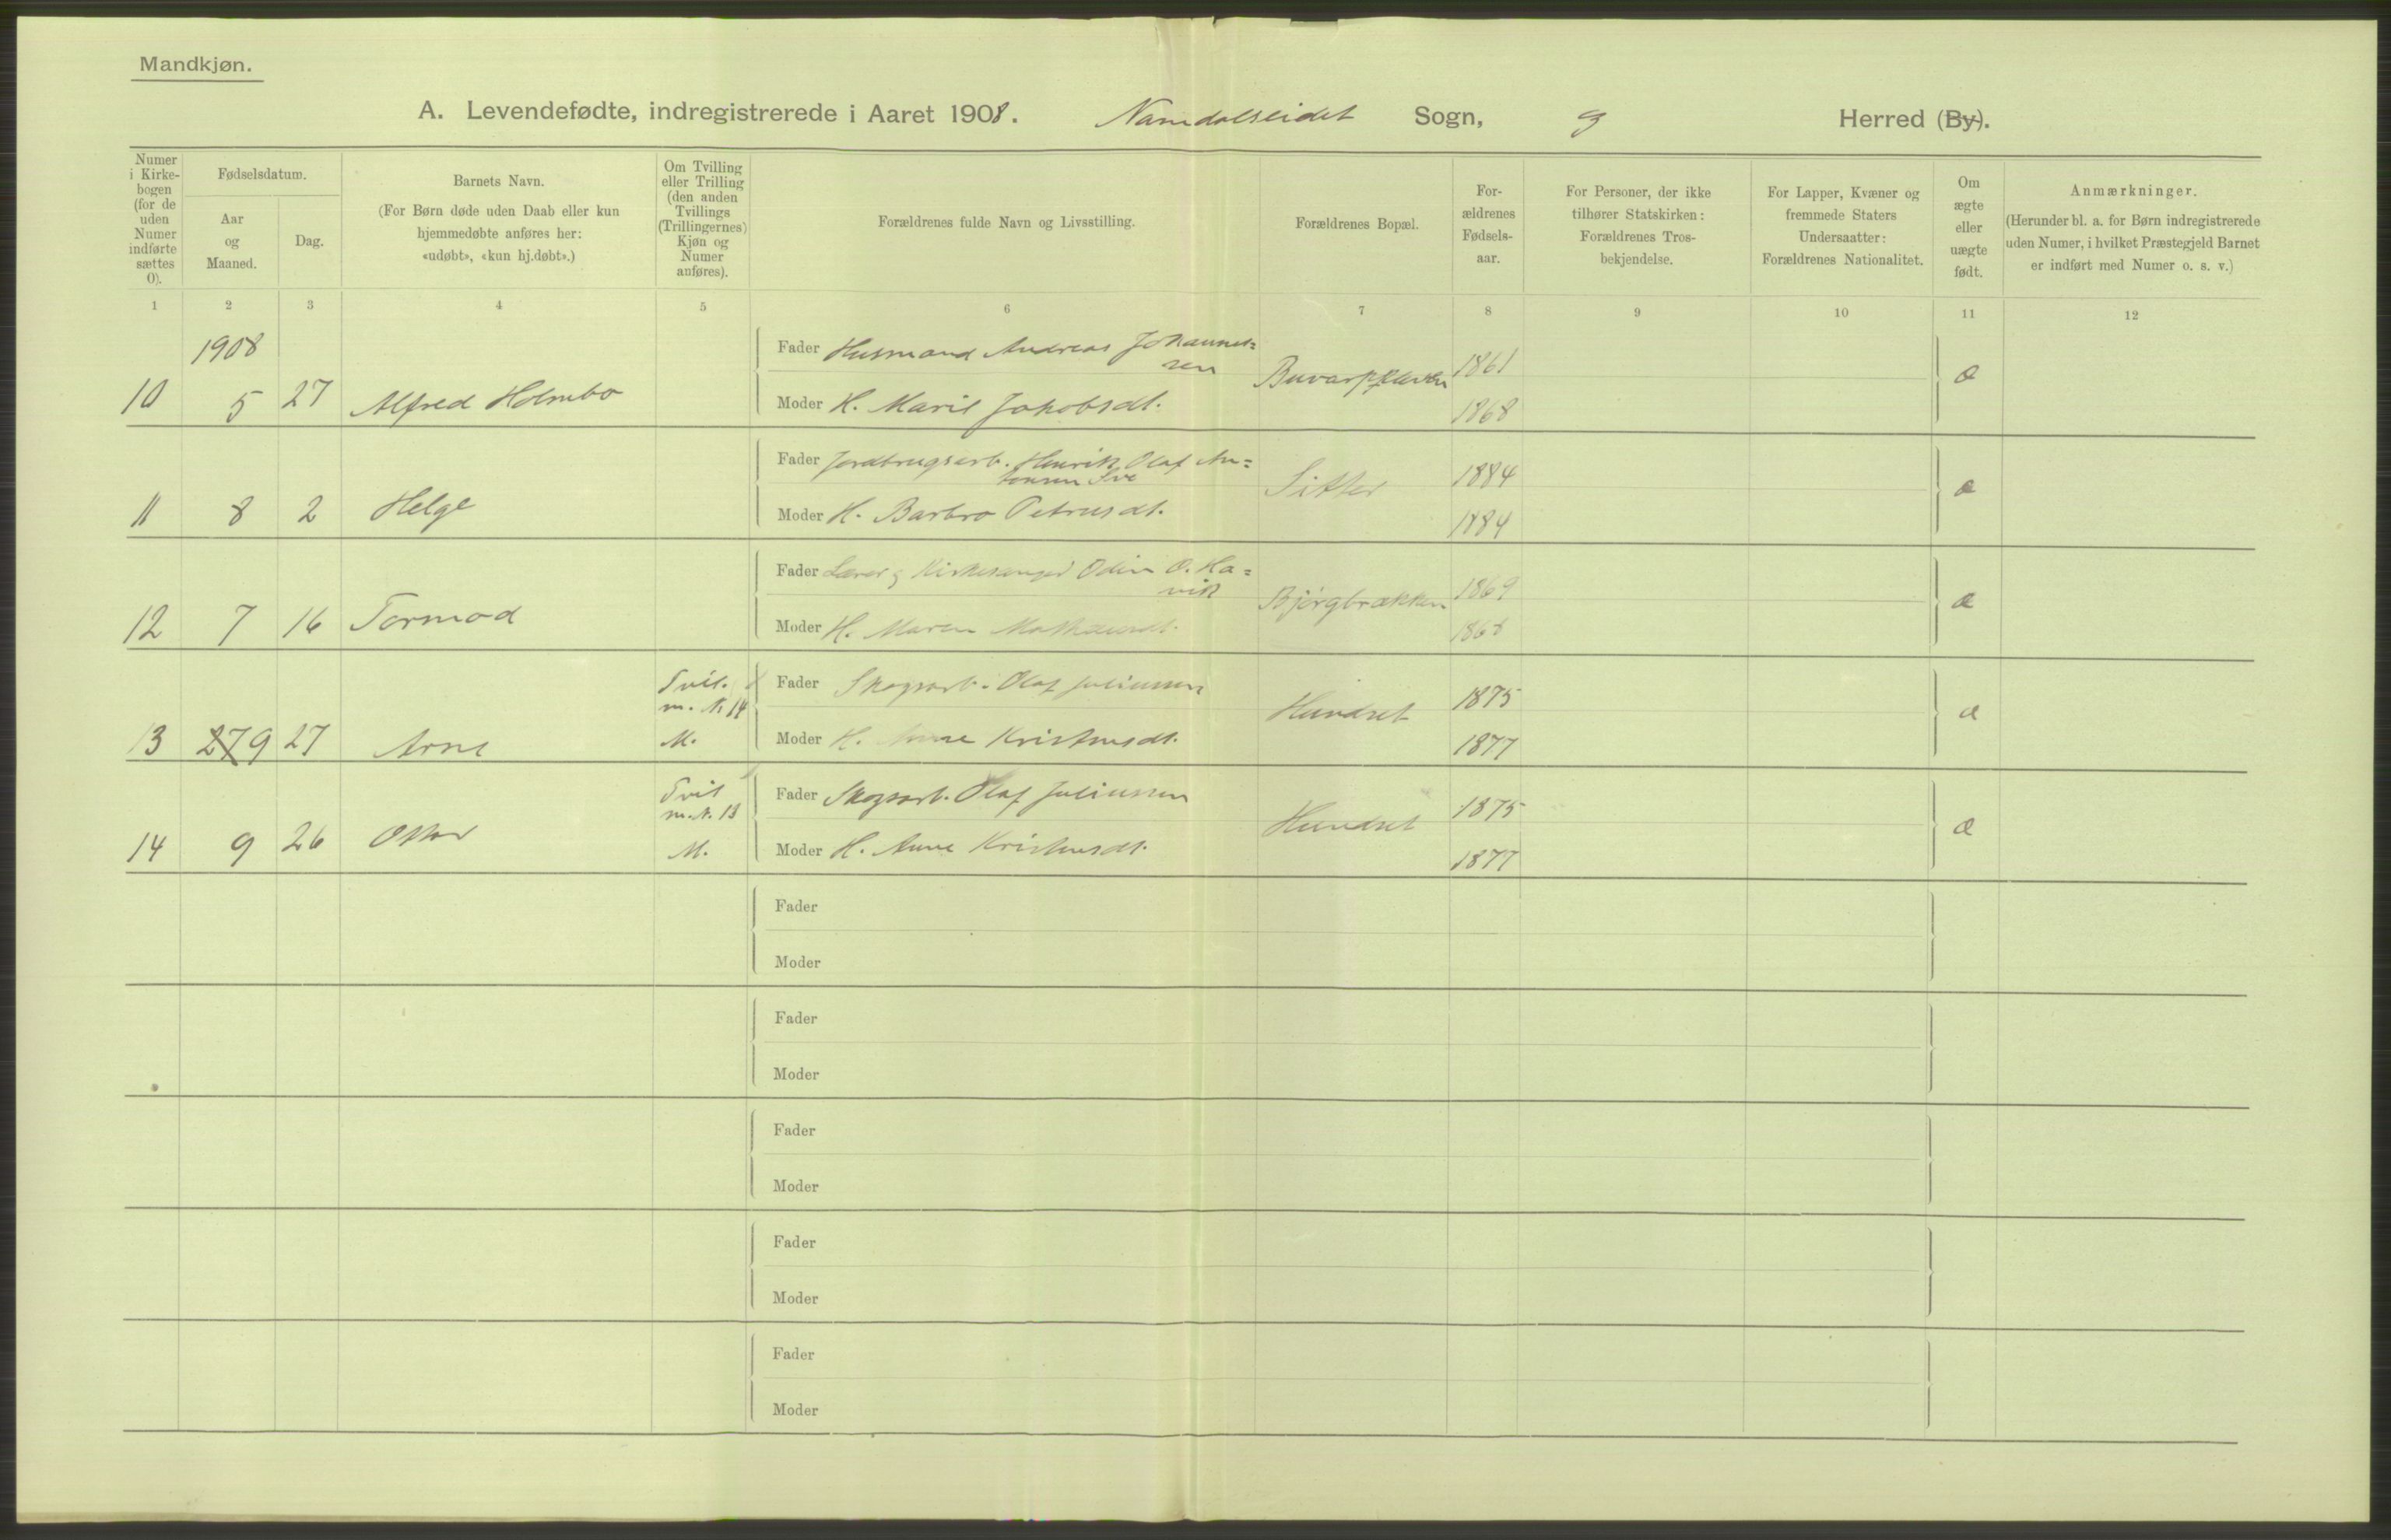 Mandkjøn.
A. Levendefødte, indregistrerede i Aaret 1908. Namdalseidet Sogn, g Herred (By).
Numer i Kirkebogen (for de uden Numer indførte sættes 0).
Fødselsdatum.
Aar og Maaned.
Dag.
Barnets Navn.
(For Børn døde uden Daab eller kun hjemmedøbte anføres her: «udøbt», «kun hj.døbt».)
Om Tvilling eller Trilling (den anden Tvillings (Trillingernes) Kjøn og Numer anføres).
Forældrenes fulde Navn og Livsstilling.
Forældrenes Bopæl.
Forældrenes Fødselsaar.
For Personer, der ikke tilhører Statskirken: Forældrenes Trosbekjendelse.
For Lapper, Kvæner og fremmede Staters Undersaatter: Forældrenes Nationalitet.
Om ægte eller uægte født.
Anmærkninger.
(Herunder bl. a. for Børn indregistrerede uden Numer, i hvilket Præstegjeld Barnet er indført med Numer o. s. v.)
1 2 3 4 5 6 7 8 9 10 11 12
1908
Fader Husmand Andreas Johannes=
sen
1861
10 5 27 Alfred Holmbo
Moder H. Marit Jakobsdt.
1868
æ
Fader Jordbrugsarb. Henrik Olaf An=
tonsen
Sitter 1884
11 8 2 Helge
Moder H. Barbro Petrusdt.
1884
æ
Fader Lærer g Kirkesanger Odin O. Ha=
vik
Bjørgbrækken 1869
12 7 16 Tormod
Moder H. Maren
1868
æ
Tvil. m. N. 14
M.
Fader Skogsarb. Olaf Juliussen
Hundset 1875
13 27 9 27 Arne
Moder H. Anne Kristensdt.
1877
æ
Tvil m. N. 13
M.
Fader Skogsarb. Olaf Juliussen
Hundset 1875
14 9 26 Oskar
Moder H. Anne Kristensdt.
1877
æ
Fader
Moder
Fader
Moder
Fader
Moder
Fader
Moder
Fader
Moder